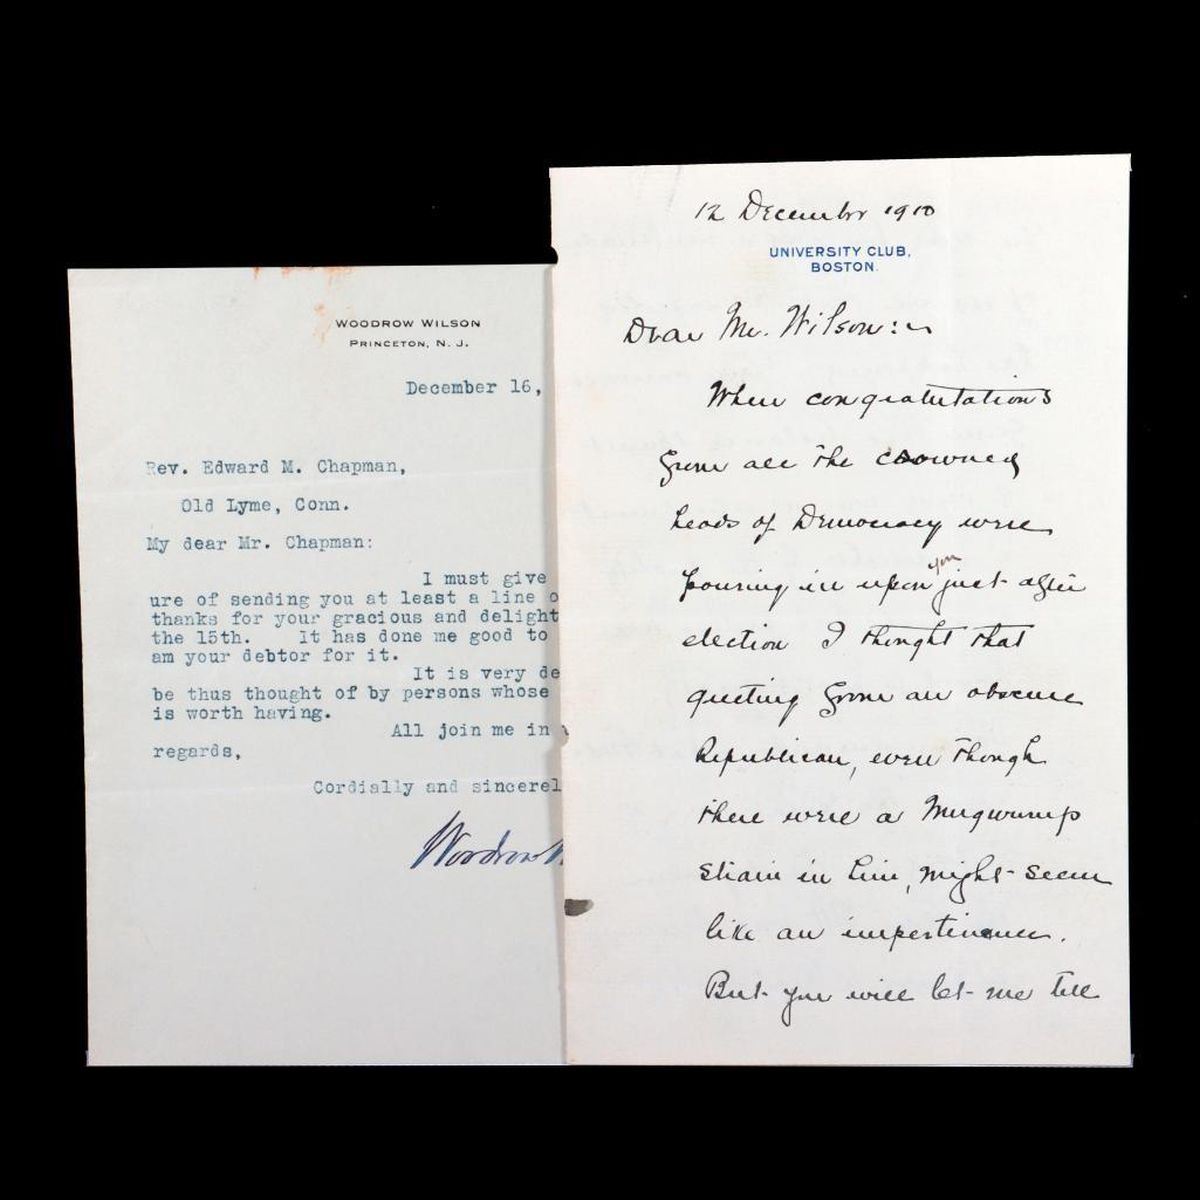 WOODROW WILSON
PRINCETON, N. J.
December 16,
Rev. Edward M. Chapman,
Old Lyme, Conn.
My dear Mr. Chapman:
I must give
ure of sending you at least a line o
thanks for your gracious and delight
the 15th. It has done me good to
am your debtor for it.
It is very de
be thus thought of by persons whose
is worth having.
All join me in
regards,
Cordially and sincerel
Woodrow W
12 December 1910
UNIVERSITY CLUB,
BOSTON.
Dear Mr. Wilson:-
When congratulations
from all the crowned
heads of Democracy were
pouring in upon you just after
election I thought that
greeting from an obscure
Republican, even though
there were a Mugwump
strain in him, might seem
like an impertinence.
But you will let me tell